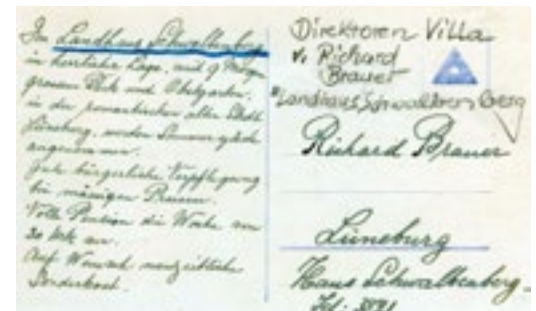 Im Landhaus Schwalbenberg
in herrlicher Lage, mit 9 Morgen
grossem Park und Obstgarten,
in der romantischen alten Stadt
Lüneburg, werden Sommergäste
angenommen.
Gute bürgerliche Verpflegung
bei mässigen Preisen.
Volle Pension die Woche von
30 Mk an.
Auf Wunsch neuzeitliche
Sonderkost.
Direktoren Villa
v. Richard
Brauer
"Landhaus Schwalbenberg
Richard Brauer
Lüneburg
Haus Schwalbenberg